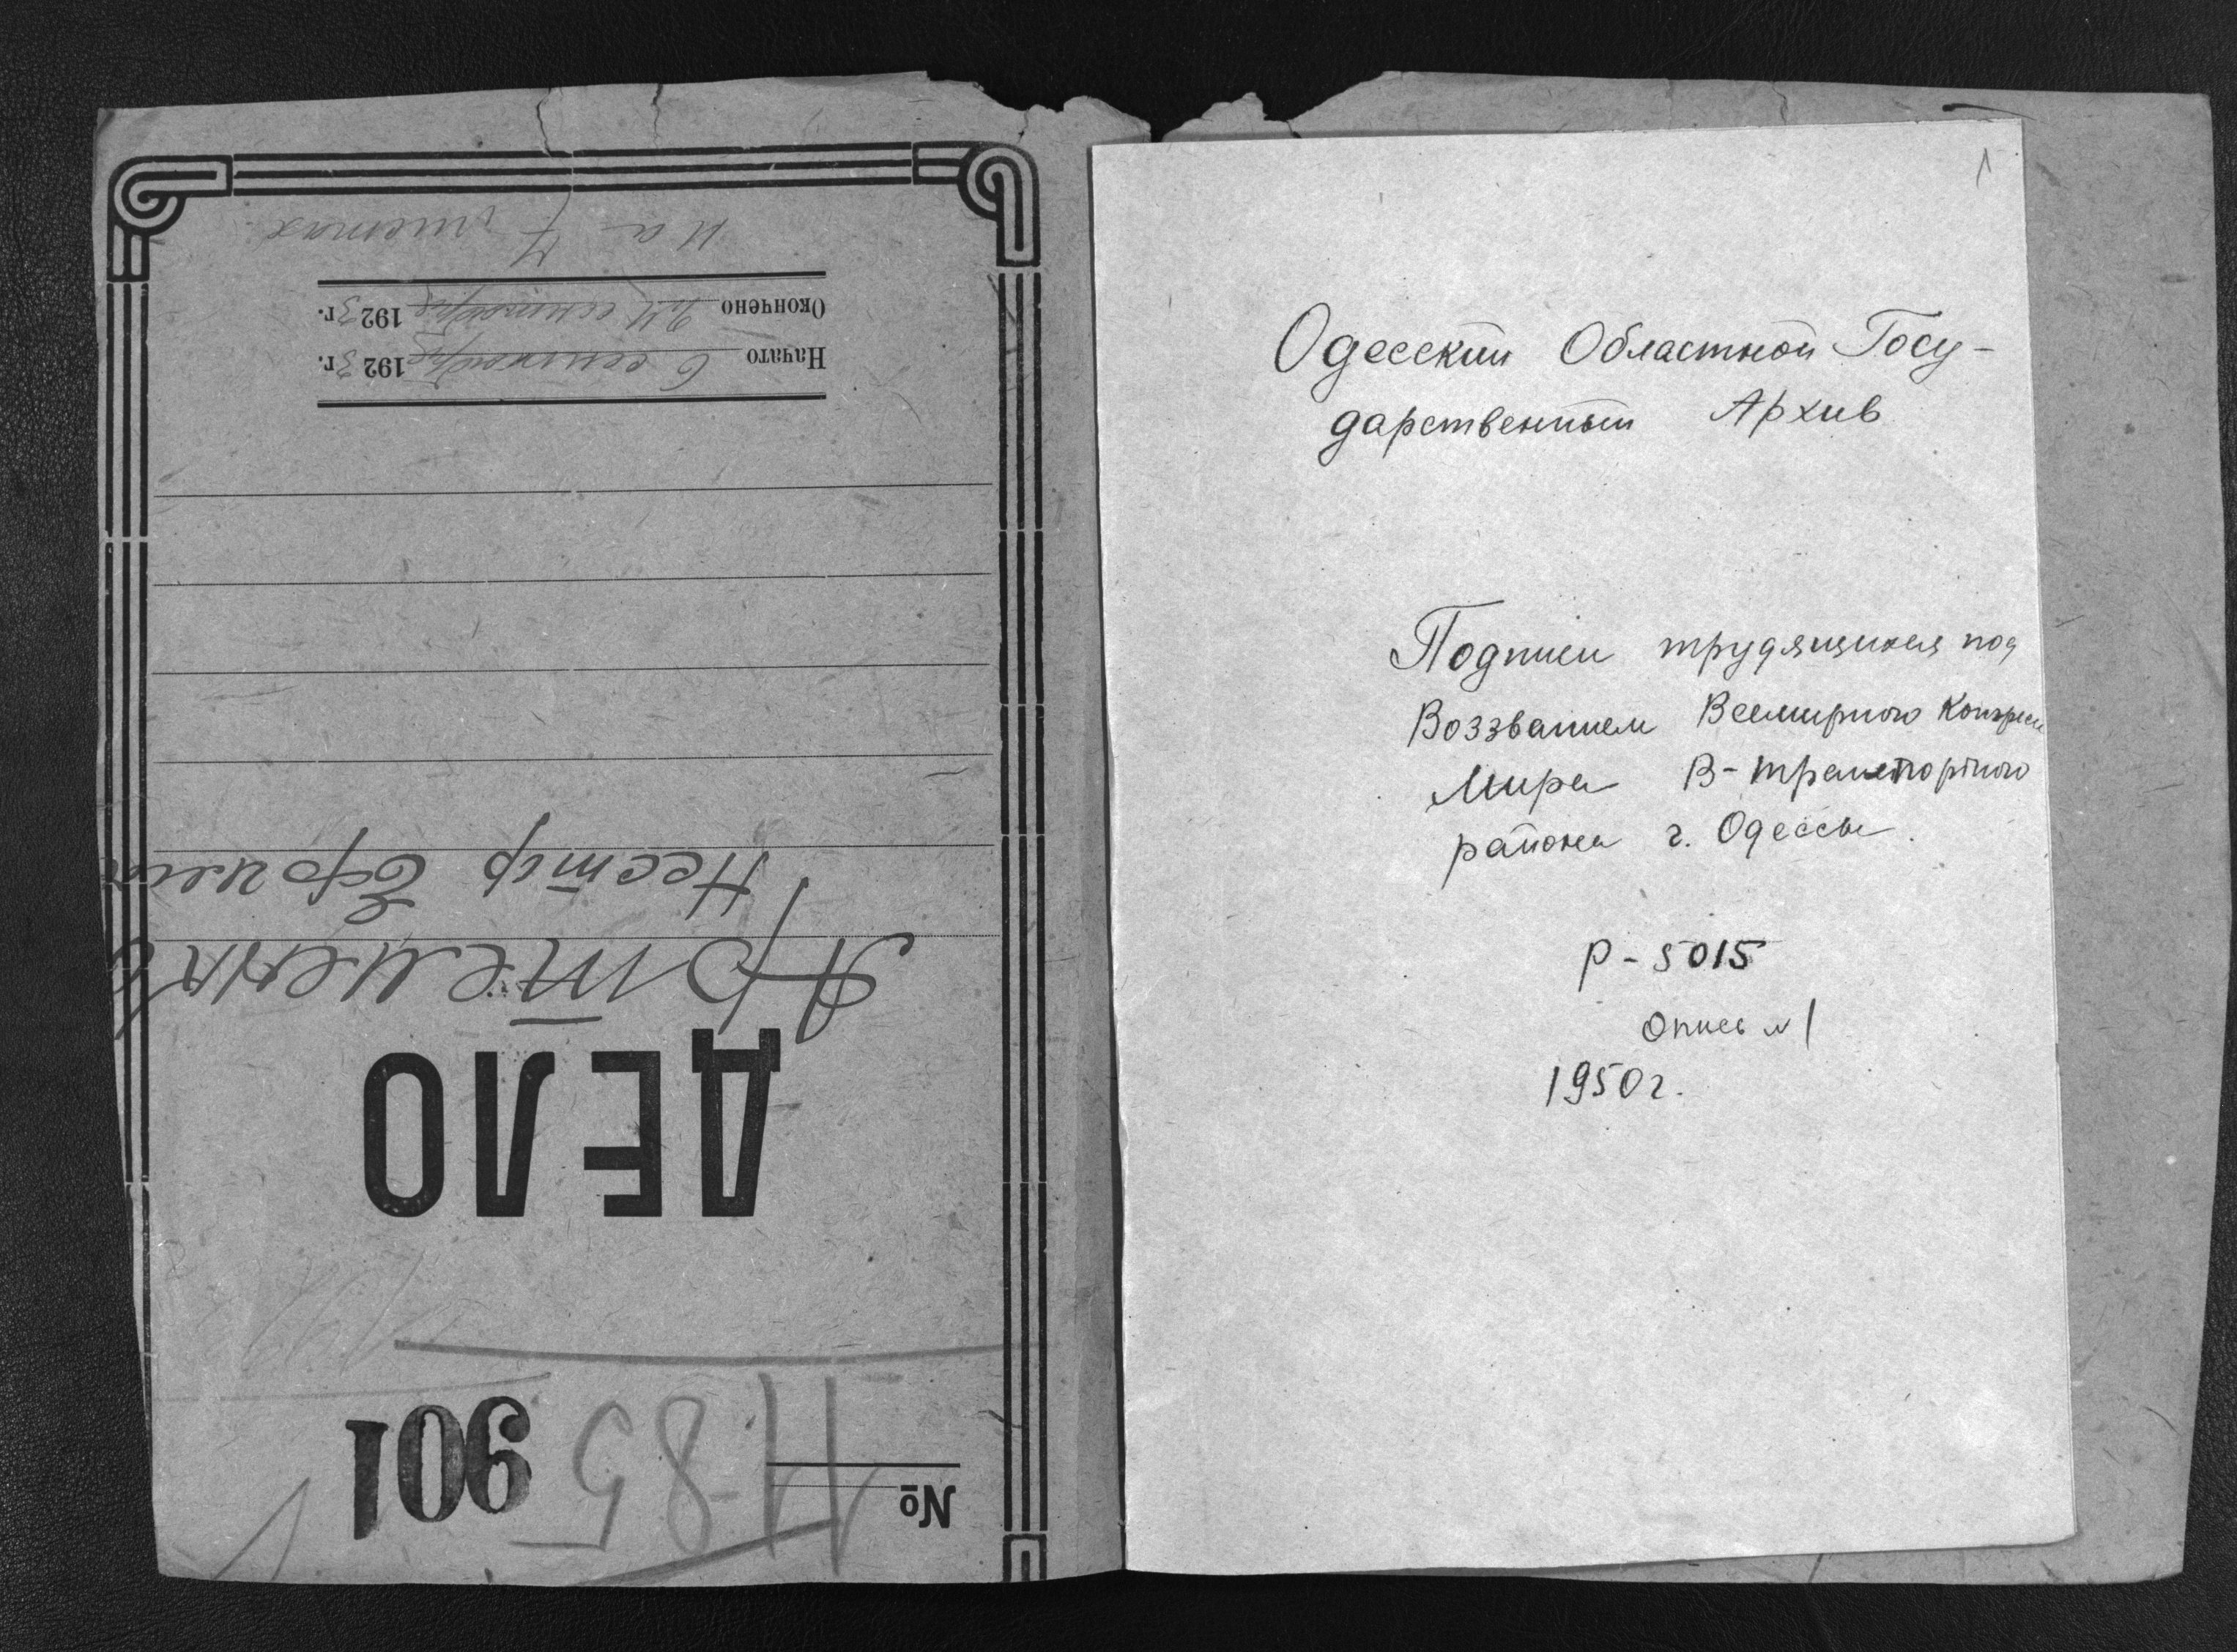 № 1185
901
ДЕЛО
Артеменко
Нестор Ефимов
Начато 6 сентября 1923 г.
Окончено 24 сентября 1923 г.
на 7 листах
1
Одесский Областной Госу-
дарственный Архив
Подписи трудящихся под
Воззванием Всемирного Конгресса
Мира В-транспортного
района г. Одессы.
Р-5015
Опись №1
1950г.